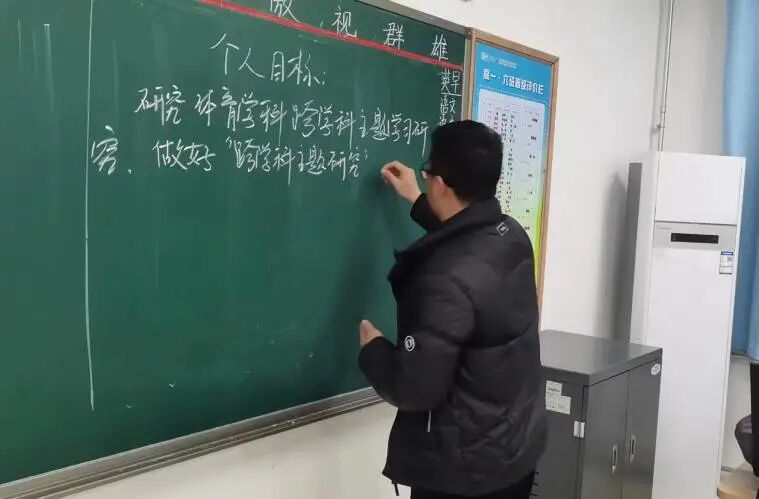 傲视群雄
个人目标：
研究体育学科跨学科主题学习研
究，做好“跨学科主题研究”
英早
语文
高一·六班